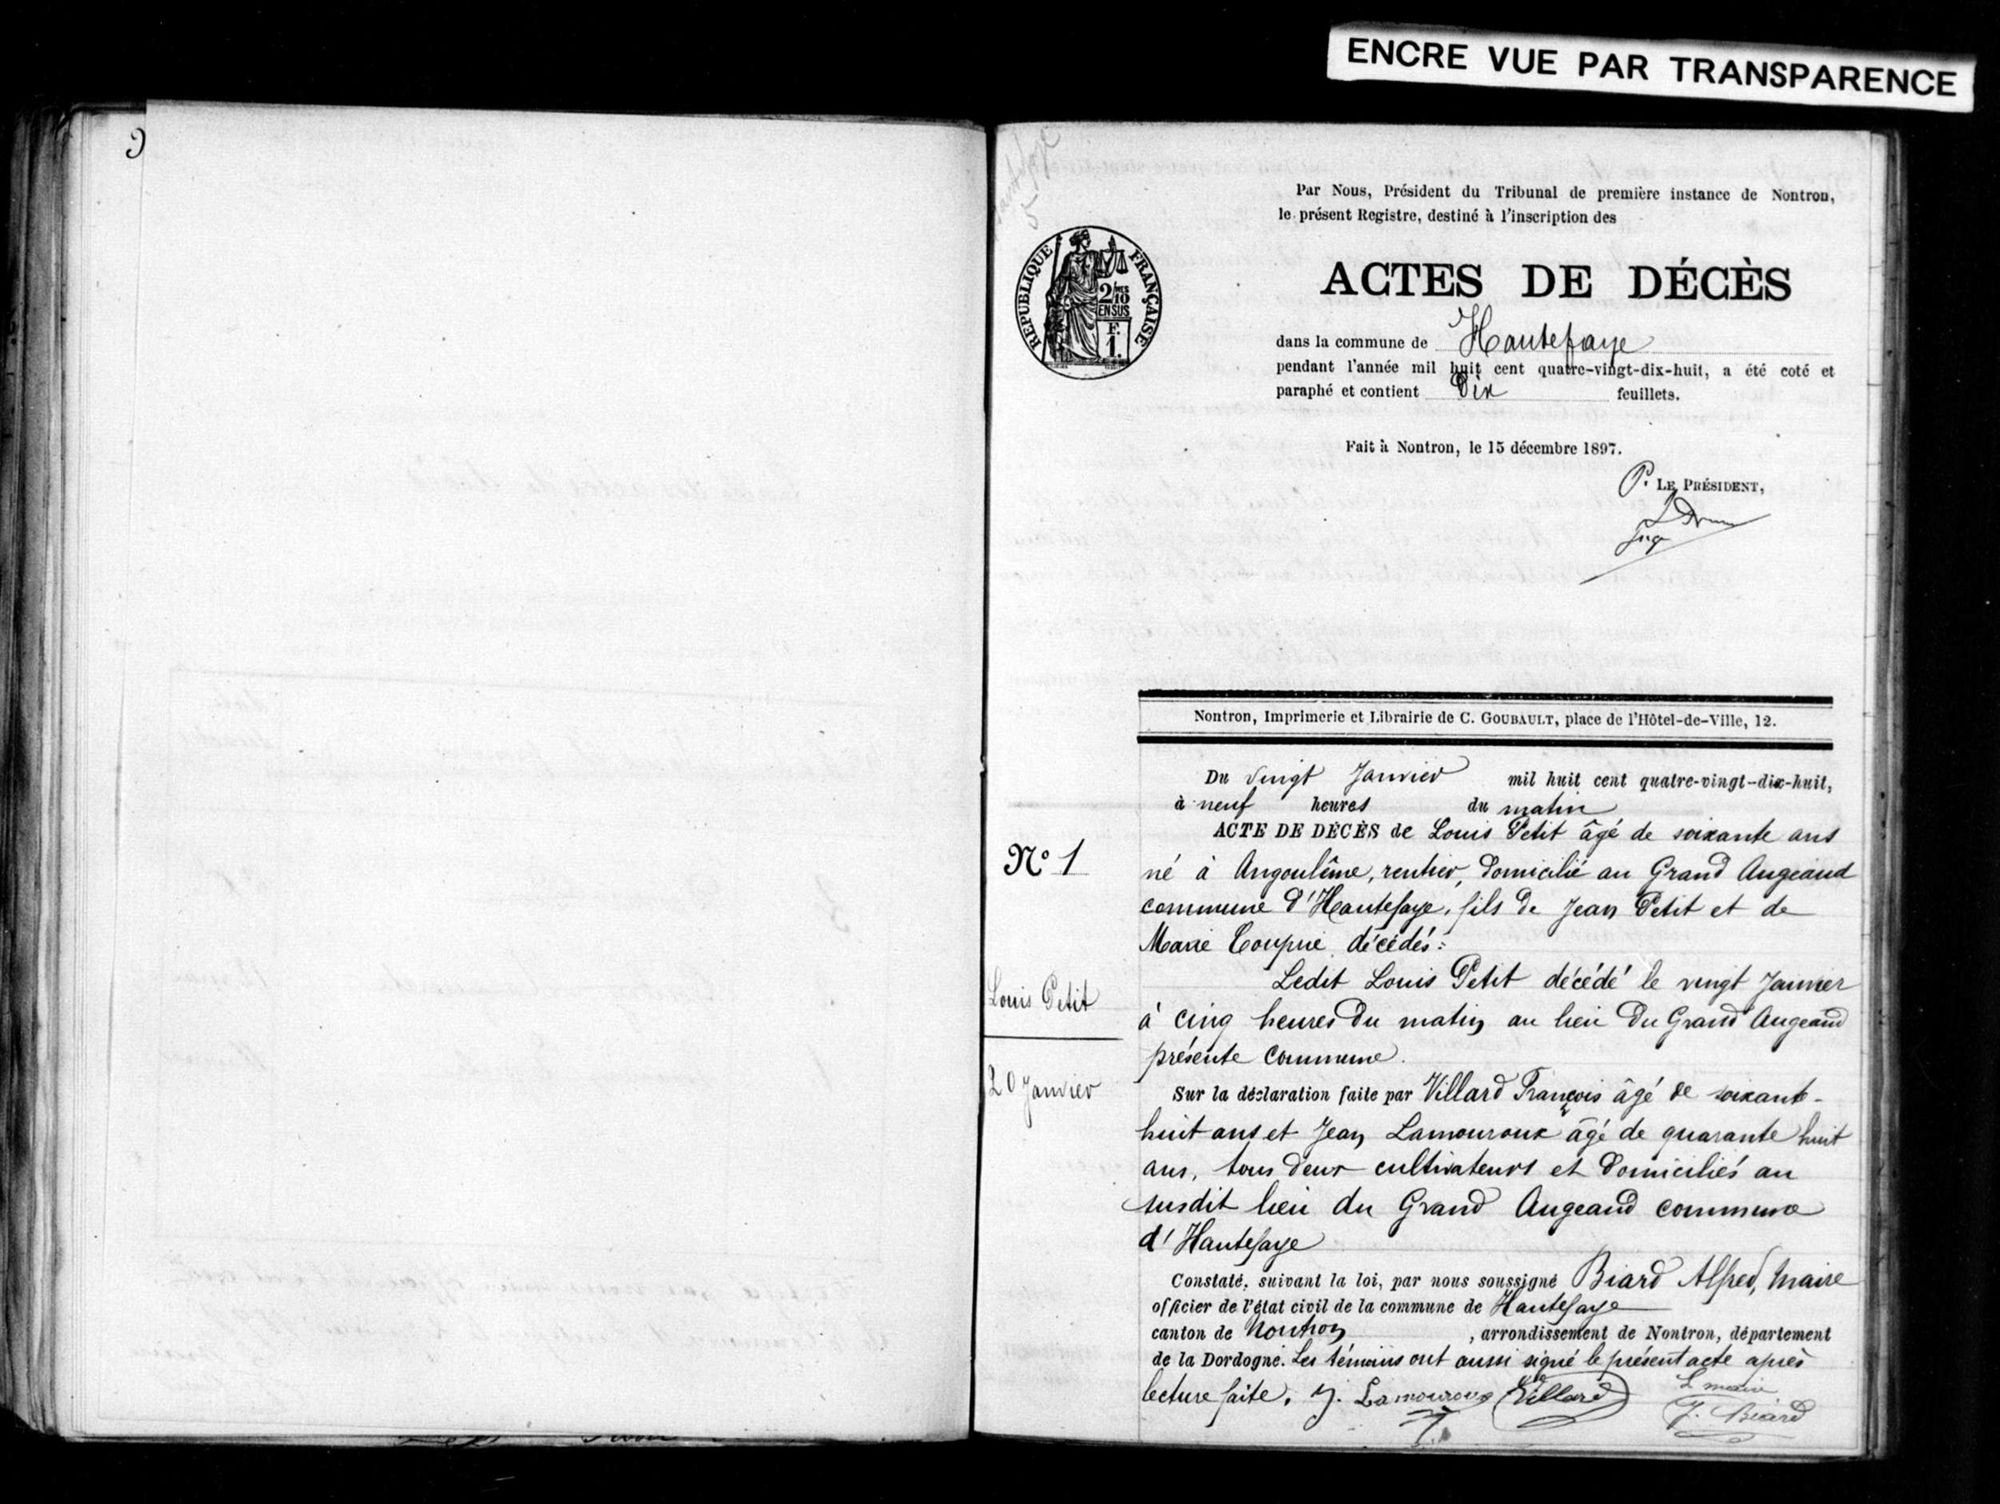 ENCRE VUE PAR TRANSPARENCE
Par Nous, Président du Tribunal de première instance de Nontron,
le présent Registre, destiné à l'inscription des
RÉPUBLIQUE FRANÇAISE
2/10 MES
EN SUS
F.
1.
ACTES DE DÉCÈS
dans la commune de Hautefaye
pendant l'année mil huit cent quatre-vingt-dix-huit, a été coté et
paraphé et contient Dix feuillets.
Fait à Nontron, le 15 décembre 1897.
P. LE PRÉSIDENT,
juge
Nontron, Imprimerie et Librairie de C. GOUBAULT, place de l'Hôtel-de-Ville, 12.
Du vingt Janvier mil huit cent quatre-vingt-dix-huit,
à neuf heures du matin
N° 1
ACTE DE DÉCÈS de Louis Petit âgé de soixante ans
né à Angoulême, rentier, domicilié au Grand Augeaud
commune d'Hautefaye, fils de Jean Petit et de
Marie décédés:
Louis Petit
Ledit Louis Petit décédé le vingt Janvier
à cinq heures du matin au lieu du Grand Augeaud
présente commune.
20 Janvier
Sur la déclaration faite par Villard François âgé de soixante-
huit ans et Jean Lamouroux âgé de quarante huit
ans, tous deux cultivateurs et domiciliés au
susdit lieu du Grand Augeaud commune
d'Hautefaye
Constaté, suivant la loi, par nous soussigné Biard Alfred, Maire
officier de l'état civil de la commune de Hautefaye
canton de Nontron, arrondissement de Nontron, département
de la Dordogne. Les témoins ont aussi signé le présent acte après
lecture faite. J. Lamouroux Villard
Le maire
Biard